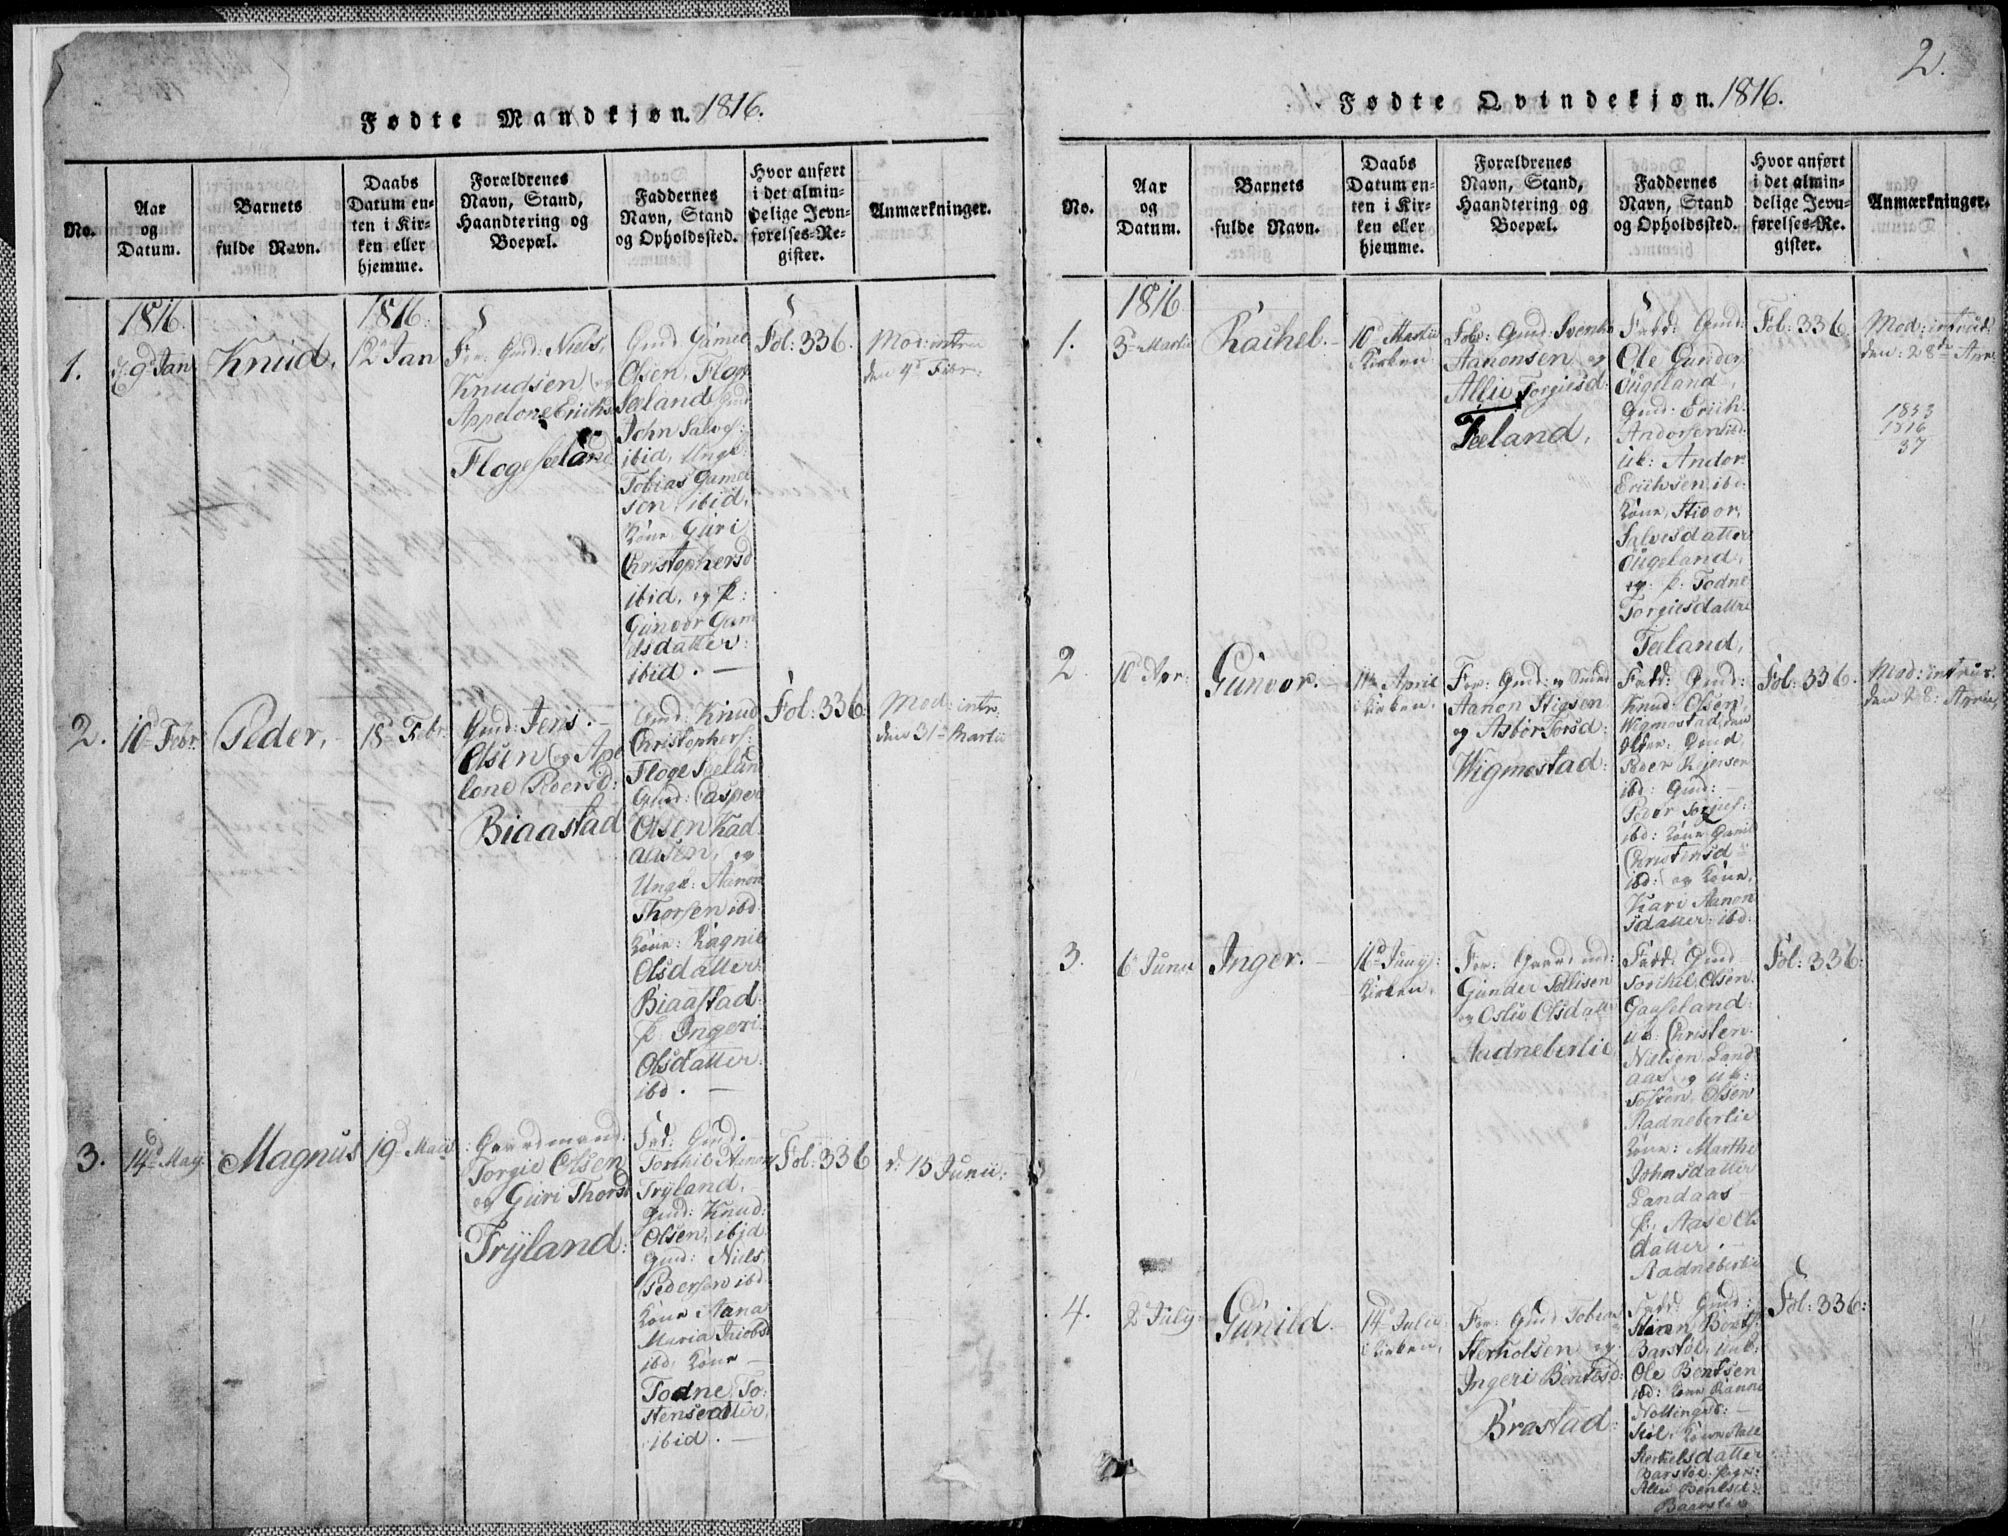 2.
Fødte Mandkjøn. 1816.
No.
Aar
og
Datum.
Barnets
fulde Navn.
Daabs
Datum en-
ten i Kir-
ken eller
hjemme.
Forældrenes
Navn, Stand,
Haandtering og
Boepæl.
Faddernes
Navn, Stand
og Opholdssted.
Hvor anført
i det almin-
delige Jevn-
førelses-Re-
gister.
Anmærkninger.
1816.
1816.
1.
9d Jan
Knud.
12 Jan
For: Gmd: Niels
Knudsen og
Appelone Erichs
Flogeseeland
Gmd Gamel
Olsen, Floge
seeland Gmd
John Salves:
ibid, Ungk:
Tobias Gamel
sen, ibid,
Kone, Guri
Christophersd
ibid, og p:
Gunvor Gam
elsdatter
ibid. —
Fol: 336.
Mod: intro
den 4d Febr:
2.
10 Febr:
Peder,
18 Febr
Gmd: Jens
Olsen og Ape
lone Pedersd:
Biaastad
Gmd: Knud
Christophers:
Floge Seeland
Gmd: Casper
Olsen Kad
aasen, og
Ungk: Aanon
Thorsen ibd
Kone: Ragnil
Olsdatter
Biaastad
p. Ingeri
Olsdatter
ibd. —
Fol: 336
Mod: intr:
den 31 Martii
3.
14d May
Magnus
19 Maii
Gaardmand:
Torgie Olsen
og Guri Thorsd
Tryland:
Fad: Gmd.
Torkil Aanon
Tryland,
Gmd: Knud
Olsen, ibid
Gmd: Niels
Pedersen ibd
Kone Aana
Maria Jacobsd
ibd, Kone —
Todne To:
stensdatter,
ibid. —
Fol: 336
d: 15 Junii:
Fødte Qvindekjøn. 1816.
No.
Aar
og
Datum.
Barnets
fulde Navn.
Daabs
Datum en-
ten i Kir-
ken eller
hjemme.
Forældrenes
Navn, Stand,
Haandtering og
Boepæl.
Faddernes
Navn, Stand
og Opholdssted.
Hvor anført
i det almin-
delige Jevn-
førelses-Re-
gister.
Anmærkninger.
1816
1.
3 Martii
Rachel.
10 Martii
Kirken
For: Gmd: Svenke
Aanonsen og
Allie Torgiesd:
Feeland,
Fadd: Gmd:
Ole Gunder
Øigeland,
Gmd: Erich
Andorsen ibd
uk: Andor
Erichsen, ibd:
Kone, Sivor,
Salvesdatter
Øigeland,
og p: Todne
Torgiesdatter
Feeland,
Fol: 336
Mod: introd:
den: 28de Apr:
1853
1816
37
2
10 Apr:
Gunvor.
11te April
Kirken,
For: Gmd: og Smed
Aanon Stigsen
og Asbor Torsd:
Wigmostad:
Fadd: Gmd:
Knud Olsen,
Wigmostad, den
Older: Gmd,
Peder Reiersen
ibd: Gmd:
Peder Torjus:
ibd: Kone Gunil
Christensd
ibd: og Kone,
Kari Aanon
sdatter ibd.
Fol: 336.
Mod: introd:
den 28: April,
3.
6 Junii
Inger.
16d Junij:
Kirken,
For: Gaardmd:
Gunder Tollisen
og Oslie Olsdatter
Aadneberlie
Fadd: Gmd
Torkil, Olsen.
Gaaseland:
uk: Christen.
Nielsen Land
aas og uk:
Tosten, Olsen
Aadneberlie
Kone: Marthe
Johnsdatter
Landaas
p. Aase Ols
datter.
Aadneberlie
Fol: 336:
4.
2 July
Gunild.
14d Julii
Kirken,
For: Gmd Tobias
Sterkolsen og
Ingeri Bentsd:
Brastad:
Fadd: Gmd:
Bents:
Barstøl, unk:
Ole Bentsen
ibd: Kone Ranne
Kone Aase
Sterkelsdatter
Barstøl.
Bentsd:
Baarstøl
Fol: 336: